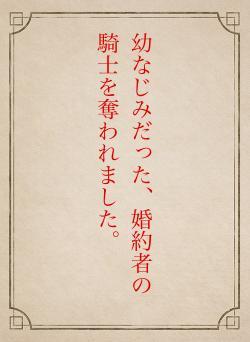 幼なじみだった、婚約者の
騎士を奪われました。